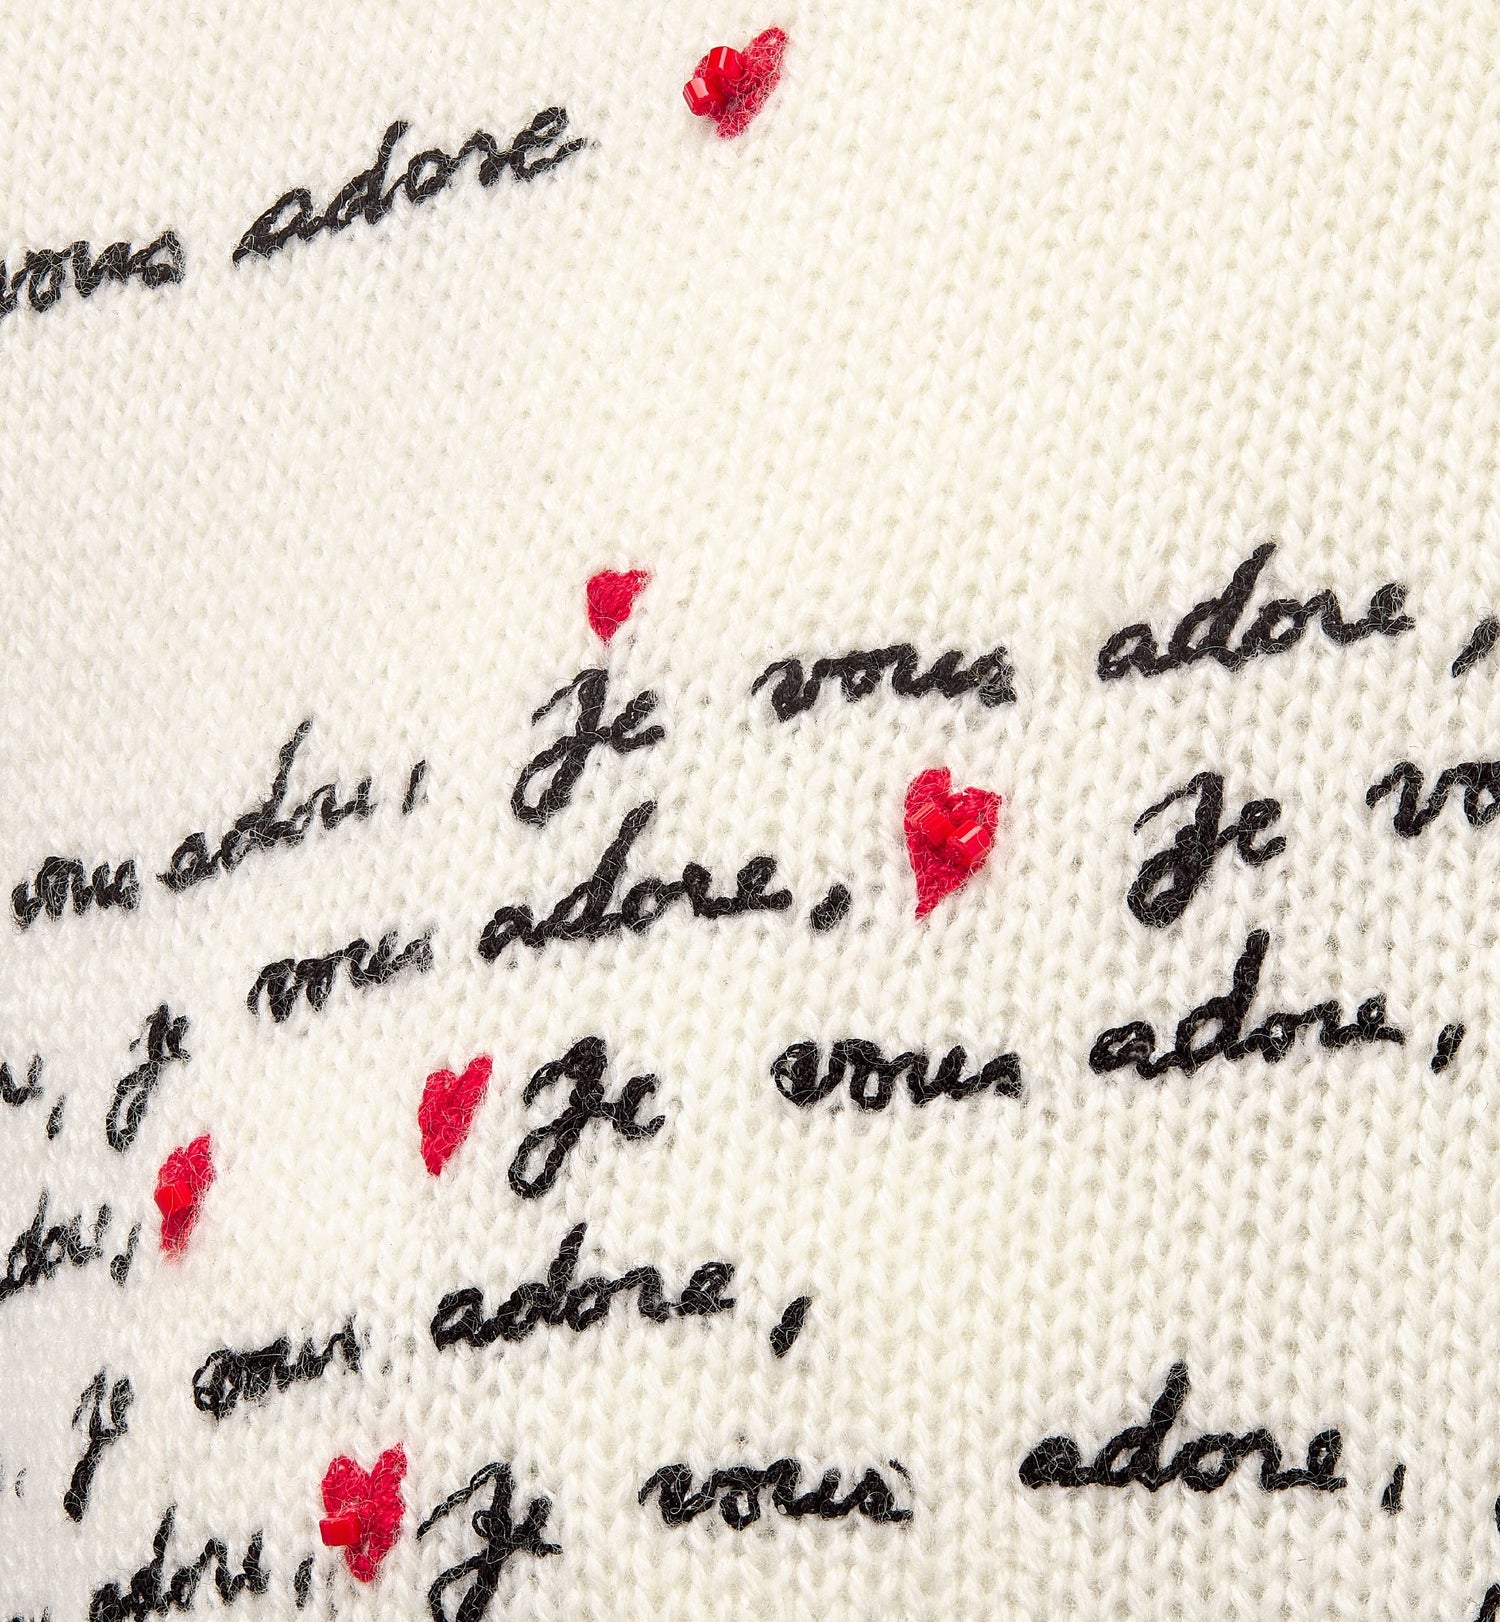 vous adore
vous adore, Je vous adore,
je vous adore, Je
Je vous adore,
je vous adore,
adore, Je vous adore,